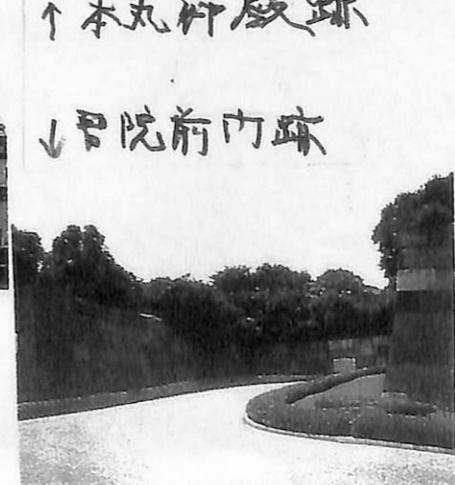 ↑本丸御殿跡
↓書院前門跡